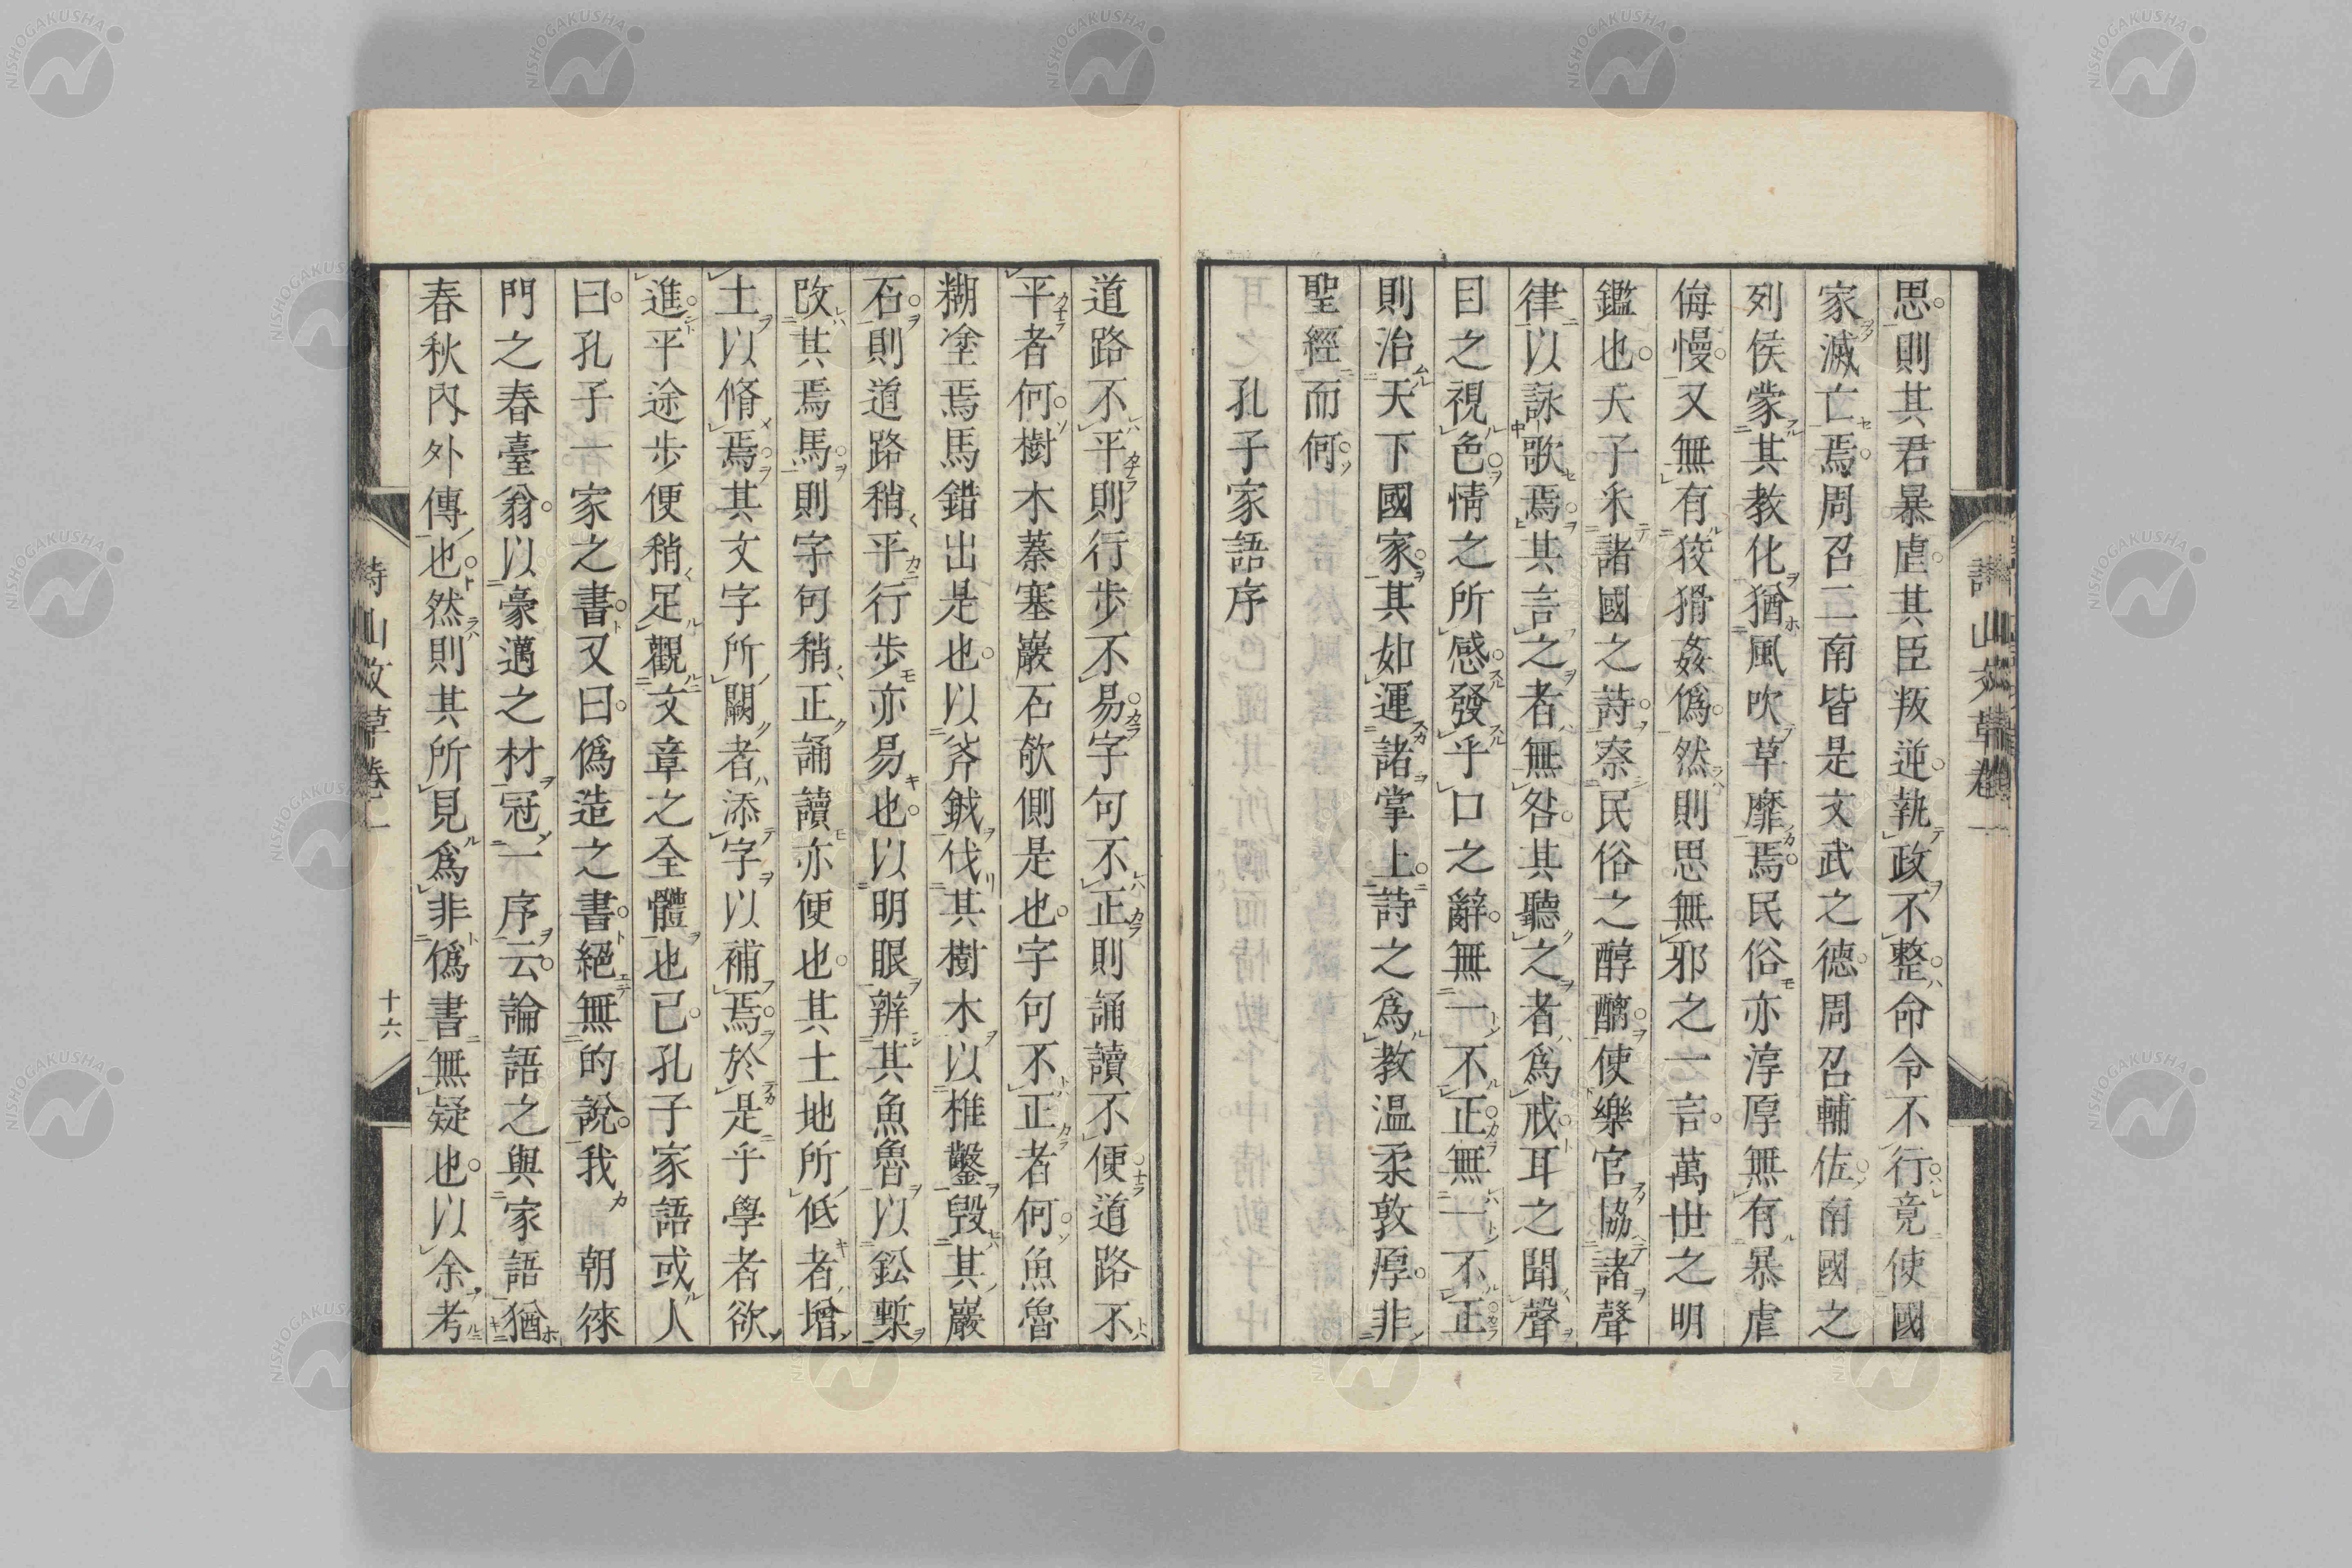 思則其君暴虐其臣叛逆執政不整命令不行竟使國
家滅亡焉周召二南皆是文武之德周召輔佐南國之
列侯蒙其教化猶風吹草靡焉民俗亦淳厚無有暴虐
侮慢又無有狡猾姦僞然則思無邪之一言萬世之明
鑑也天子采諸國之詩察民俗之醇醨使樂官協諸聲
律以詠歌焉其言之者無咎其聽之者爲戒耳之聞聲
目之視色情之所感發乎口之辭無一不正無一不正
則治天下國家其如運諸掌上詩之爲教温柔敦厚非
聖經而何
孔子家語序
詩山文草卷一
道路不平則行歩不易字句不正則誦讀不便道路不
平者何樹木蓁塞巖石欹側是也字句不正者何魚魯
糊塗焉馬錯出是也以斧鉞伐其樹木以椎鑿毀其巖
石則道路稍平行歩亦易也以明眼辨其魚魯以鈆槧
改其焉馬則字句稍正誦讀亦便也其土地所低者增
土以脩焉其文字所闕者添字以補焉於是乎學者欲
進平途歩便稍足觀文章之全體也已孔子家語或人
曰孔子一家之書又曰僞造之書絕無的說我 朝徠
門之春臺翁以豪邁之材冠一序云論語之與家語猶
春秋內外傳也然則其所見爲非僞書無疑也以余考
詩山文草卷一 十六
NISHOGAKUSHA